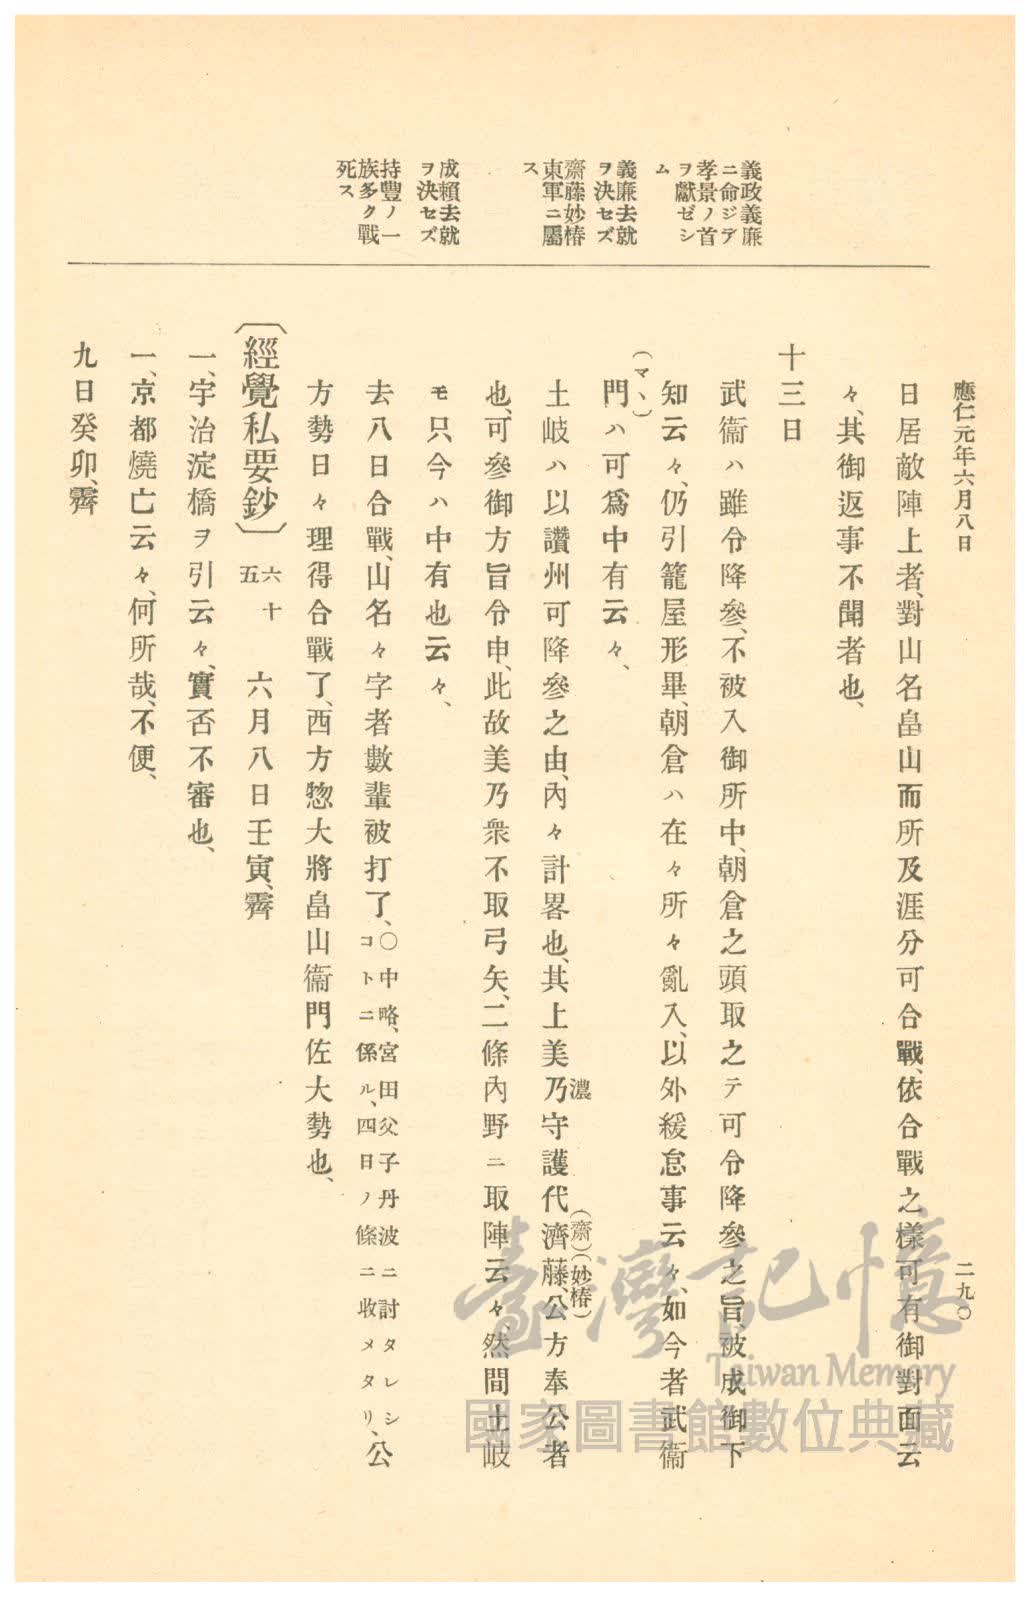 應仁元年六月八日
二九〇
義政義廉
ニ命ジテ
孝景ノ首
ヲ獻ゼシ
ム
義廉去就
ヲ決セズ
齋藤妙椿
東軍ニ屬
ス
成賴去就
ヲ決セズ
持豐ノ一
族多ク戰
死ス
日居敵陣上者、對山名畠山而所及涯分可合戰、依合戰之樣可有御對面云
々、其御返事不聞者也、
十三日
武衞ハ雖令降參、不被入御所中、朝倉之頭取之テ可令降參之旨、被成御下
知云々、仍引籠屋形畢、朝倉ハ在々所々亂入、以外緩怠事云々、如今者武衞
(マヽ)
門ハ可爲中有云々、
土岐ハ以讚州可降參之由、內々計畧也、其上美乃守護代濟藤公方奉公者
濃
(齋)(妙椿)
也、可參御方旨令申、此故美乃衆不取弓矢、二條內野ニ取陣云々、然間土岐
モ只今ハ中有也云々、
去八日合戰、山名々字者數輩被打了、〇中略、宮田父子丹波ニ討タレシコトニ係ル、四日ノ條ニ收メタリ、公
方勢日々理得合戰了、西方惣大將畠山衞門佐大勢也、
〔經覺私要鈔〕 六十五 六月八日壬寅、霽
一、宇治淀橋ヲ引云々、實否不審也、
一、京都燒亡云々、何所哉、不便、
九日癸卯、霽
臺灣記憶
Taiwan Memory
國家圖書館數位典藏